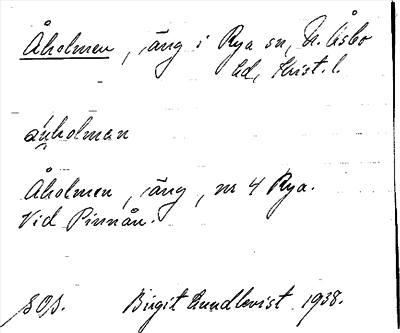 Åholmen, äng i Rya sn, N. Åsbo
hd, Krist. l.
Åholmen, äng, nr 4 Rya.
Vid Pinnån.
Birgit Lundkvist 1938.